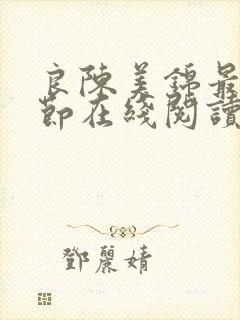 良陳美錦最
節在綫閱讀
鄧麗婧